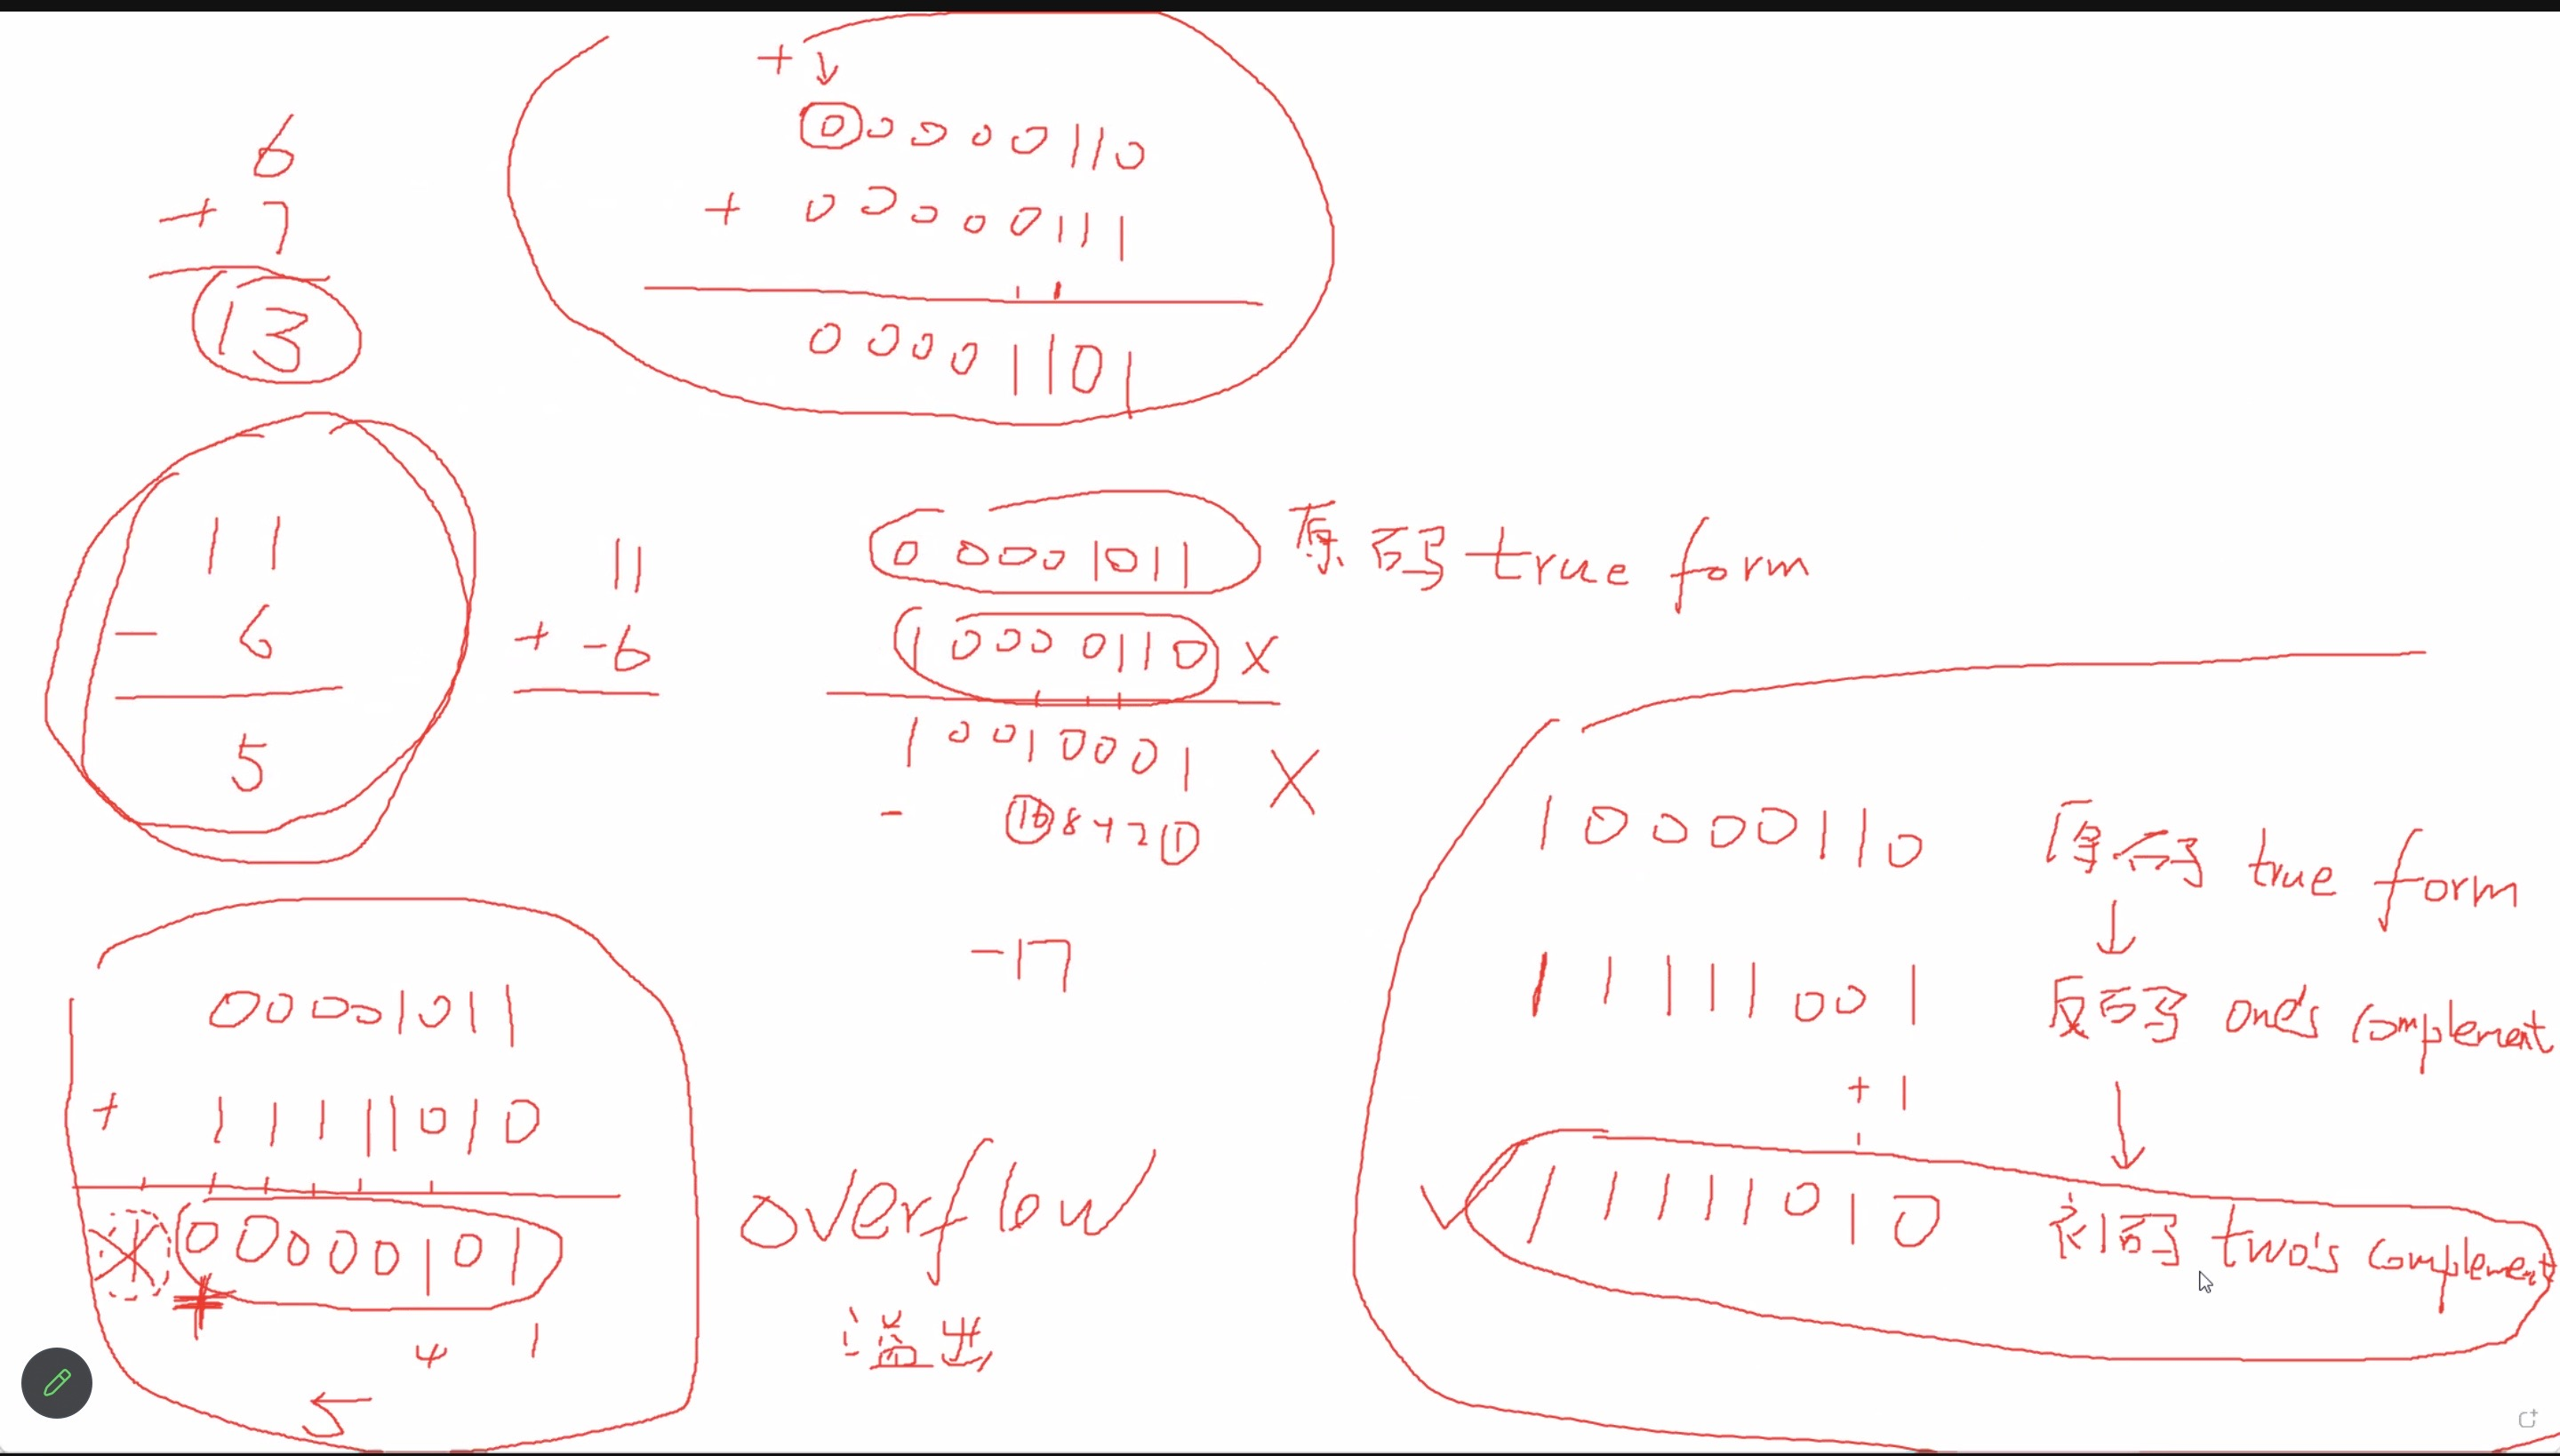 + ↓
00000110
+ 00000111
00001101
6
+ 7
13
11
- 6
5
11
+ -6
0 0001011 原码 true form
1 0000110 X
1 0010001 X
- 16 8 4 2 1
-17
00001011
+ 11111010
1 00000101
4 1
5
overflow
溢出
10000110 原码 true form
↓
11111001 反码 one's complement
+ 1
↓
✓ 11111010 补码 two's complement